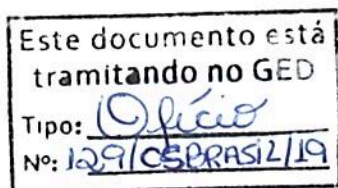 Este documento está
tramitando no GED
Tipo: Ofício
Nº: 129/CSBRASIL/19